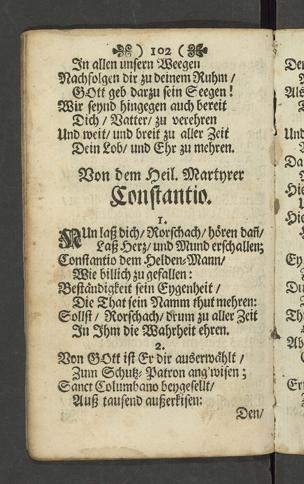 ) 102 (
In allen unsern Weegen
Nachfolgen dir zu deinem Ruhm /
GOtt geb darzu sein Seegen!
Wir seynd hingegen auch bereit
Dich / Vatter / zu verehren
Und weit / und breit zu aller Zeit
Dein Lob / und Ehr zu mehren.
Von dem Heil. Martyrer
Constantio.
1.
NUn laß dich / Rorschach / hören dañ /
Laß Herz / und Mund erschallen;
Constantio dem Helden-Mann /
Wie billich zu gefallen:
Beständigkeit sein Eygenheit /
Die That sein Namm thut mehren:
Sollst / Rorschach / drum zu aller Zeit
In Ihm die Wahrheit ehren.
2.
Von GOtt ist Er dir auserwählt /
Zum Schutz-Patron ang'wisen;
Sanct Columbano beygesellt /
Auß tausend außerkisen:
Den /